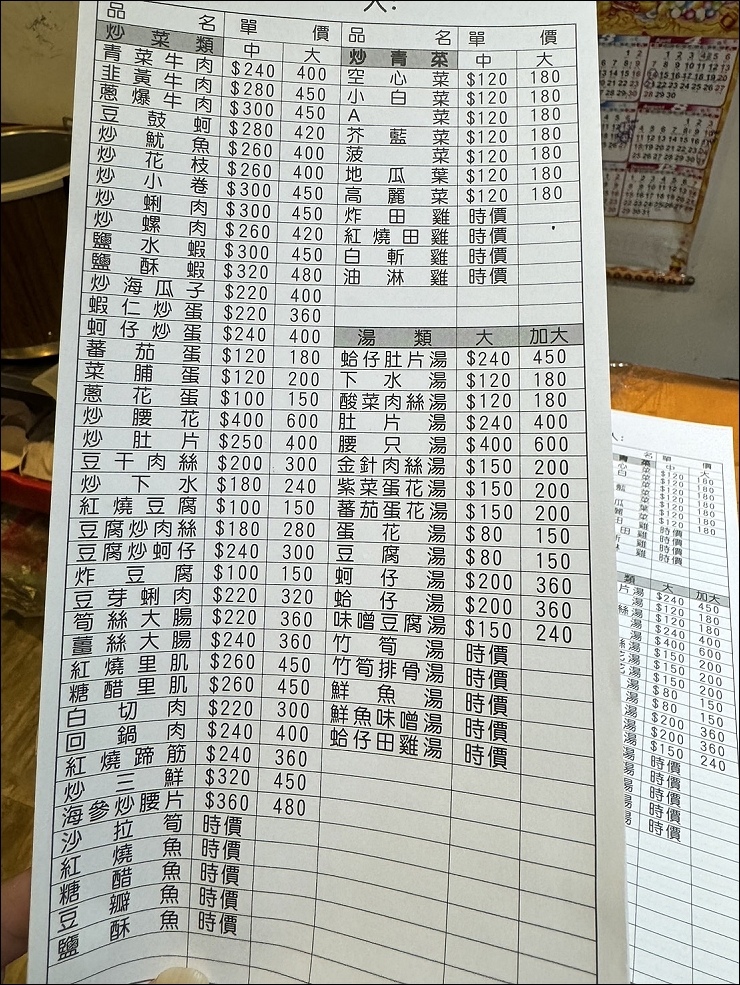 人:
品名 單價
中 大
炒菜類
青菜牛肉 $240 400
韭黃牛肉 $280 450
蔥爆牛肉 $300 450
豆鼓蚵 $280 420
炒魷魚 $260 400
炒花枝 $260 400
炒小卷 $300 450
炒蜊肉 $300 450
炒螺肉 $260 420
鹽水蝦 $300 450
鹽酥蝦 $320 480
炒海瓜子 $220 400
蝦仁炒蛋 $220 360
蚵仔炒蛋 $240 400
蕃茄蛋 $120 180
菜脯蛋 $120 200
蔥花蛋 $100 150
炒腰花 $400 600
炒肚片 $250 400
豆干肉絲 $200 300
炒下水 $180 240
紅燒豆腐 $100 150
豆腐炒肉絲 $180 280
豆腐炒蚵仔 $240 300
炸豆腐 $100 150
豆芽蜊肉 $220 320
筍絲大腸 $220 360
薑絲大腸 $240 360
紅燒里肌 $260 450
糖醋里肌 $260 450
白切肉 $220 300
回鍋肉 $240 400
紅燒蹄筋 $240 360
炒三鮮 $320 450
海參炒腰片 $360 480
沙拉筍 時價
紅燒魚 時價
糖醋魚 時價
豆瓣魚 時價
鹽酥魚 時價
品名 單價
炒青菜 中 大
空心菜 $120 180
小白菜 $120 180
A菜 $120 180
芥藍菜 $120 180
菠菜 $120 180
地瓜葉 $120 180
高麗菜 $120 180
炸田雞 時價
紅燒田雞 時價
白斬雞 時價
油淋雞 時價
湯類 大 加大
蛤仔肚片湯 $240 450
下水湯 $120 180
酸菜肉絲湯 $120 180
肚片湯 $240 400
腰只湯 $400 600
金針肉絲湯 $150 200
紫菜蛋花湯 $150 200
蕃茄蛋花湯 $150 200
蛋花湯 $80 150
豆腐湯 $80 150
蚵仔湯 $200 360
蛤仔湯 $200 360
味噌豆腐湯 $150 240
竹筍湯 時價
竹筍排骨湯 時價
鮮魚湯 時價
鮮魚味噌湯 時價
蛤仔田雞湯 時價